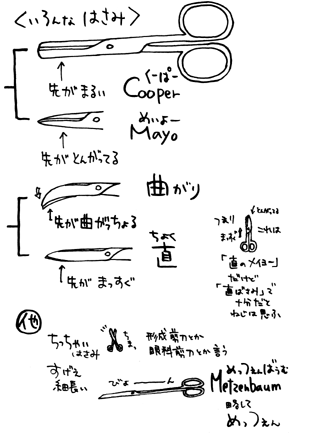 <いろんな はさみ>
くーぱー
Cooper
先がまるい
めいよー
Mayo
先がとんがってる
曲がり
先が曲がっちょる
ちょく
直
先が まっすぐ
とんがってる
つまり
これは
まっすぐ
「直のメイヨー」
だけど
「直ばさみ」で
十分だと
ねじは思ふ
他
ちっちゃい
はさみ
ちま。
形成剪刀とか
眼科剪刀とか言う
すげえ
細長い
びよーーーん
めっつぇんばうむ
Metzenbaum
略して
めっつぇん